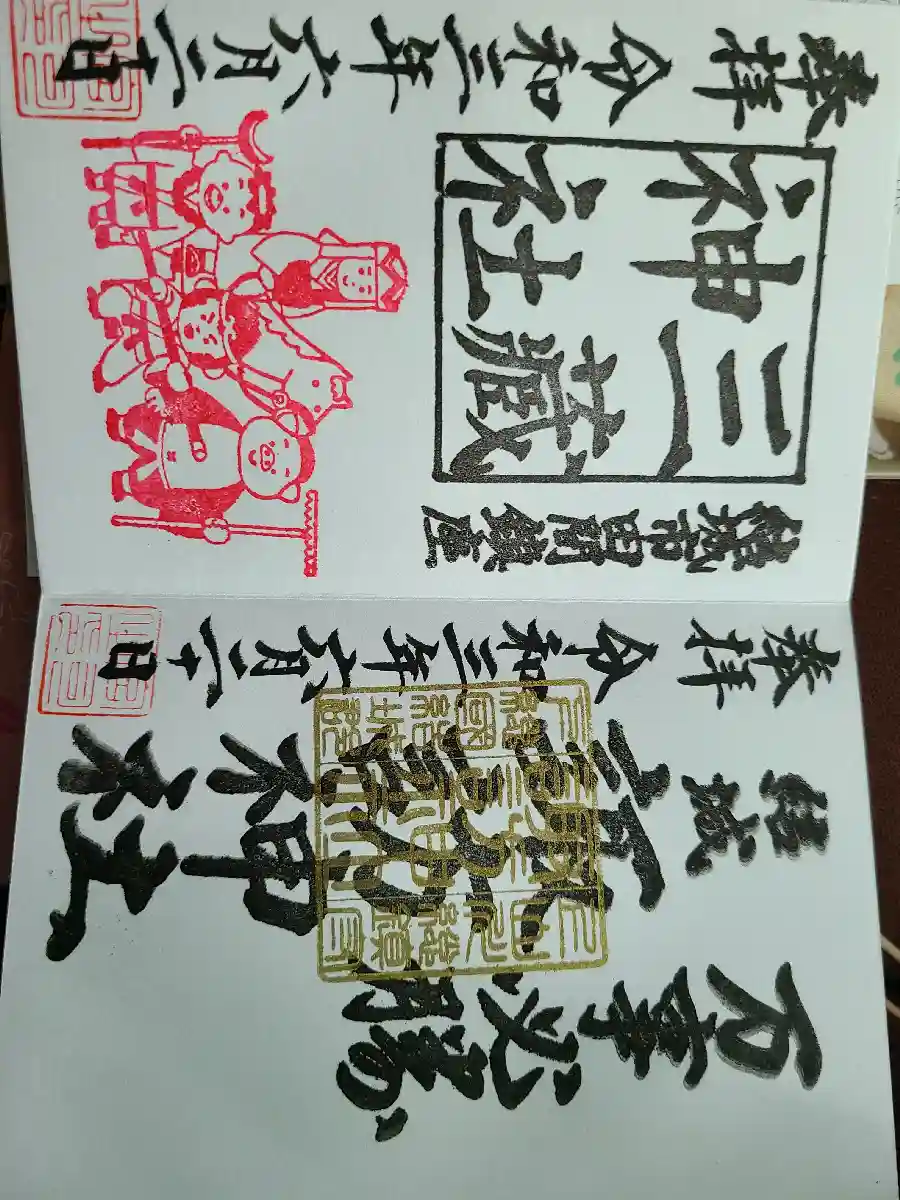 万事必勝
結城 三蔵神社
奉拝 令和三年六月二十日
結城市田間鎮座
三蔵
神社
奉拝 令和三年六月二十日